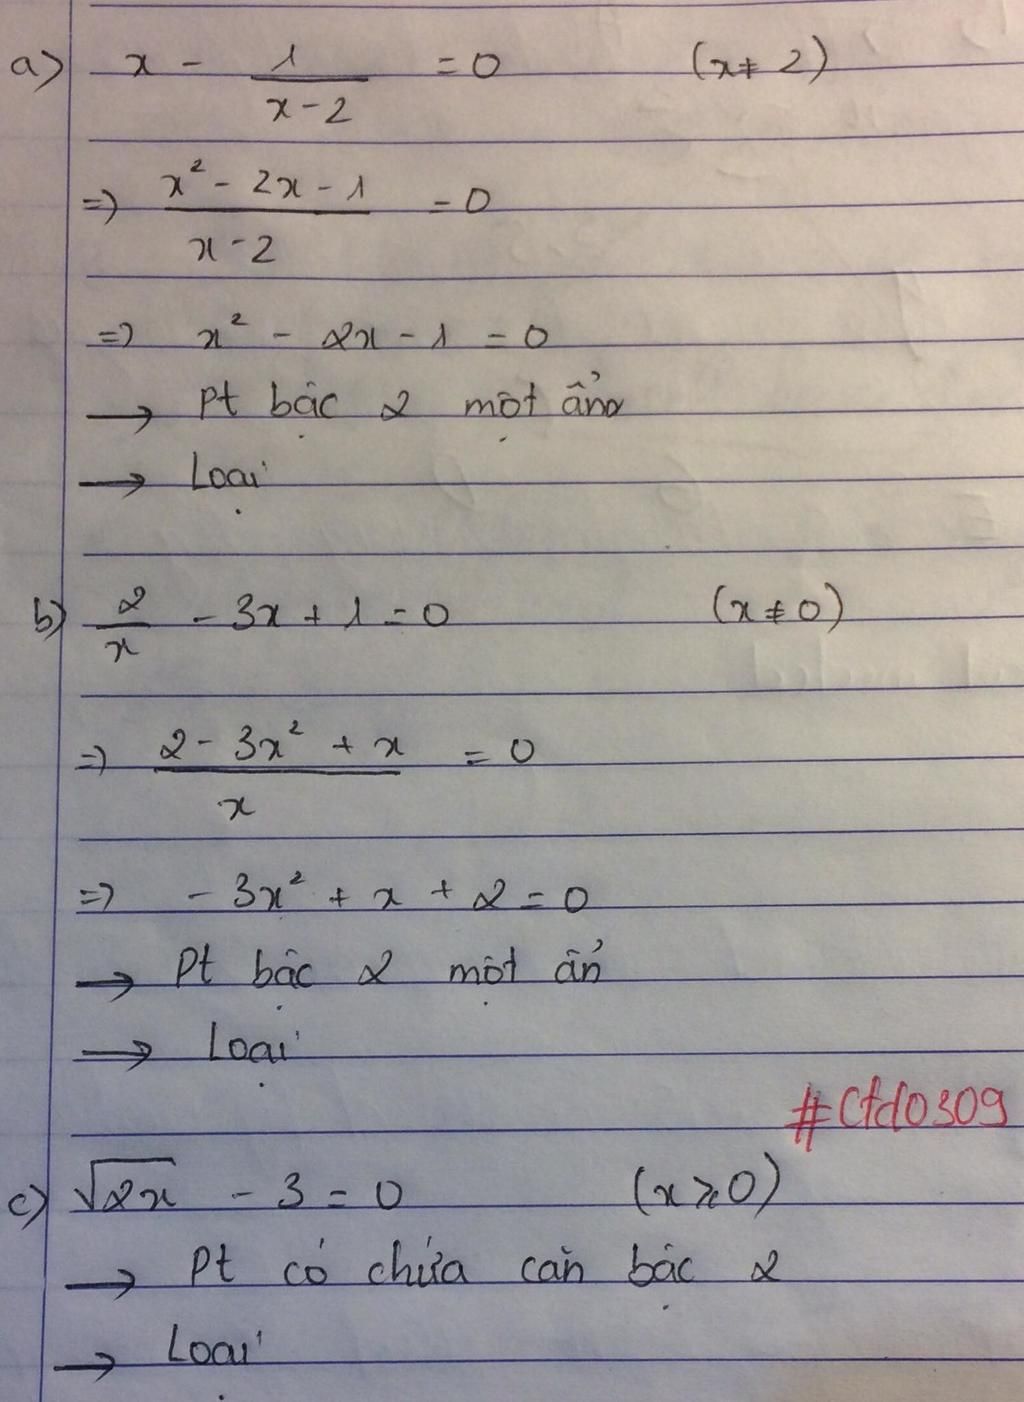 a) x - 1/(x-2) = 0 (x ≠ 2)
=> (x² - 2x - 1)/(x-2) = 0
=> x² - 2x - 1 = 0
→ Pt bậc 2 một ẩn
→ Loại
b) 2/x - 3x + 1 = 0 (x ≠ 0)
=> (2 - 3x² + x)/x = 0
=> - 3x² + x + 2 = 0
→ Pt bậc 2 một ẩn
→ Loại
#Ctd0309
c) √2x - 3 = 0 (x ⩾ 0)
→ Pt có chứa căn bậc 2
→ Loại